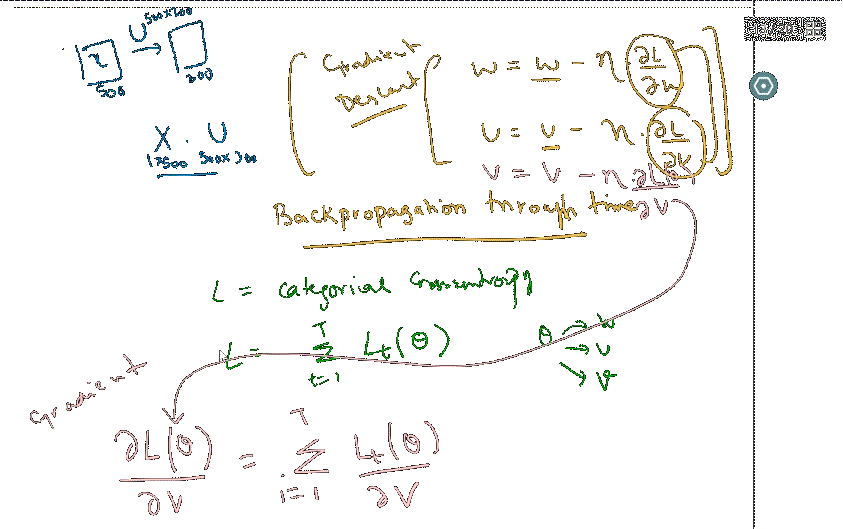 U 500x300
x
500
300
X . U
1x500 500x300
Gradient Descent
w = w - η ∂L/∂w
U = U - η . ∂L/∂U
V = V - η ∂L/∂V
Backpropagation through time
L = categorical Crossentropy
L = T Σ t=1 Lt(θ)
θ → W
→ U
→ V
gradient
∂L(θ)/∂V = T Σ i=1 Lt(θ)/∂V